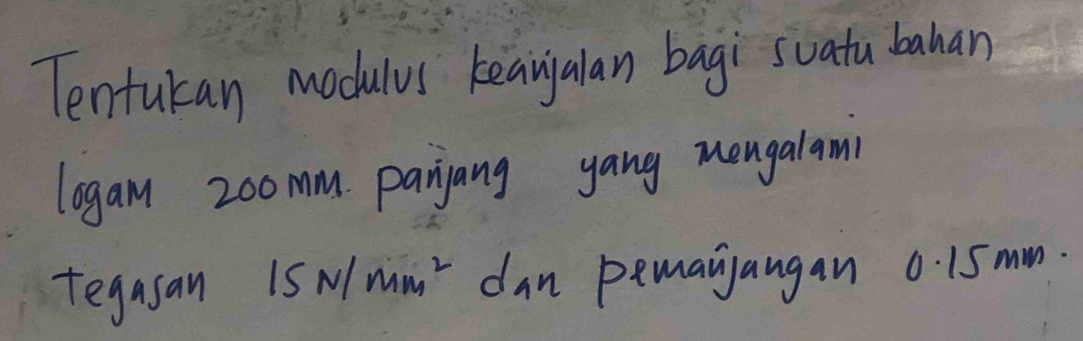 Tentukan modulus keanjalan bagi suatu bahan
logam 200 mm. panjang yang mengalami
tegasan 15 N/mm² dan pemanjangan 0.15 mm.